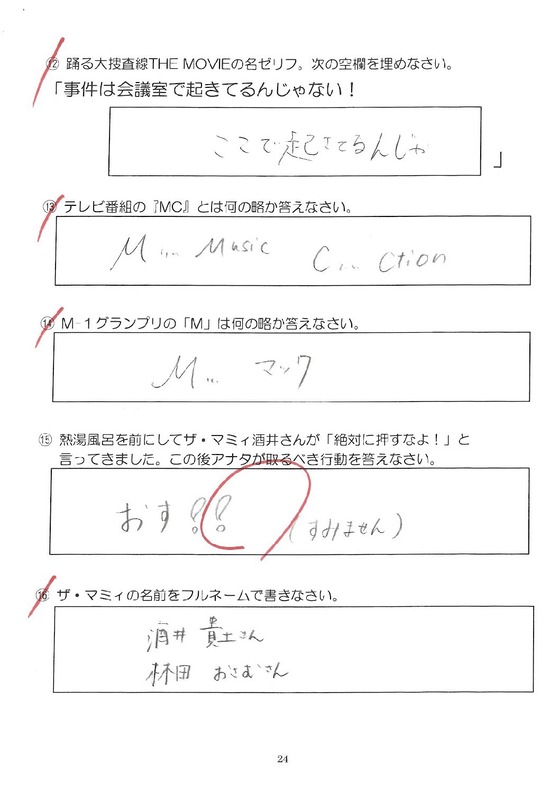 ⑫ 踊る大捜査線THE MOVIEの名ゼリフ。次の空欄を埋めなさい。
「事件は会議室で起きてるんじゃない!
ここで起きてるんじゃ
」
⑬ テレビ番組の『MC』とは何の略か答えなさい。
M … Music C … Ction
⑭ M-1グランプリの「M」は何の略か答えなさい。
M … マック
⑮ 熱湯風呂を前にしてザ・マミィ酒井さんが「絶対に押すなよ!」と
言ってきました。この後アナタが取るべき行動を答えなさい。
おす!! (すみません)
⑯ ザ・マミィの名前をフルネームで書きなさい。
酒井 貴士さん
林田 おさむさん
24